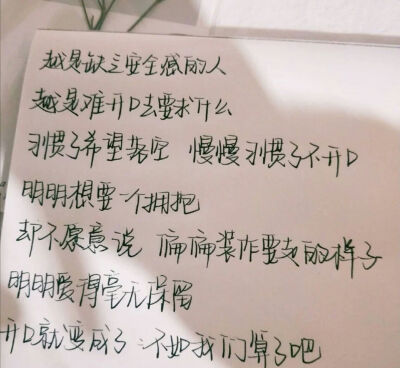 越是缺乏安全感的人
越是难开口去要求什么
习惯了希望落空 慢慢习惯了不开口
明明想要一个拥抱
却不愿意说 偏偏装作要走的样子
明明爱得毫无保留
开口就变成了 不如我们算了吧